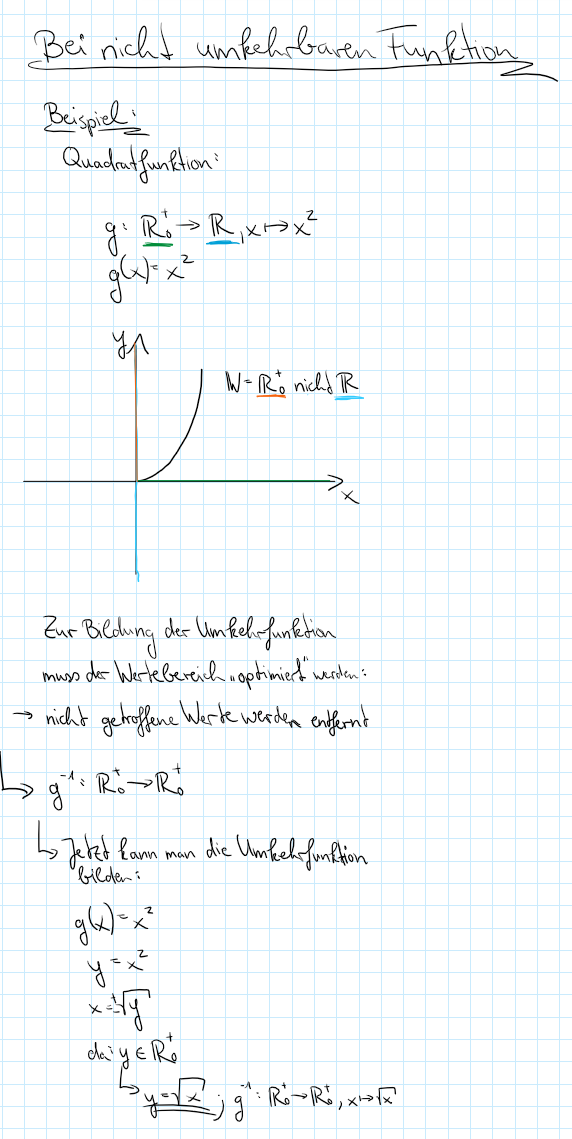 Bei nicht umkehrbaren Funktion
Beispiel:
Quadratfunktion:
g: ℝ₀⁺ → ℝ, x ↦ x²
g(x) = x²
y
W = ℝ₀⁺ nicht ℝ
x
Zur Bildung der Umkehrfunktion
muss der Wertebereich „optimiert" werden:
→ nicht getroffene Werte werden entfernt
↳ g⁻¹: ℝ₀⁺ → ℝ₀⁺
↳ Jetzt kann man die Umkehrfunktion
bilden:
g(x) = x²
y = x²
x = ±√y
da: y ∈ ℝ₀⁺
↳ y = √x ; g⁻¹: ℝ₀⁺ → ℝ₀⁺, x ↦ √x